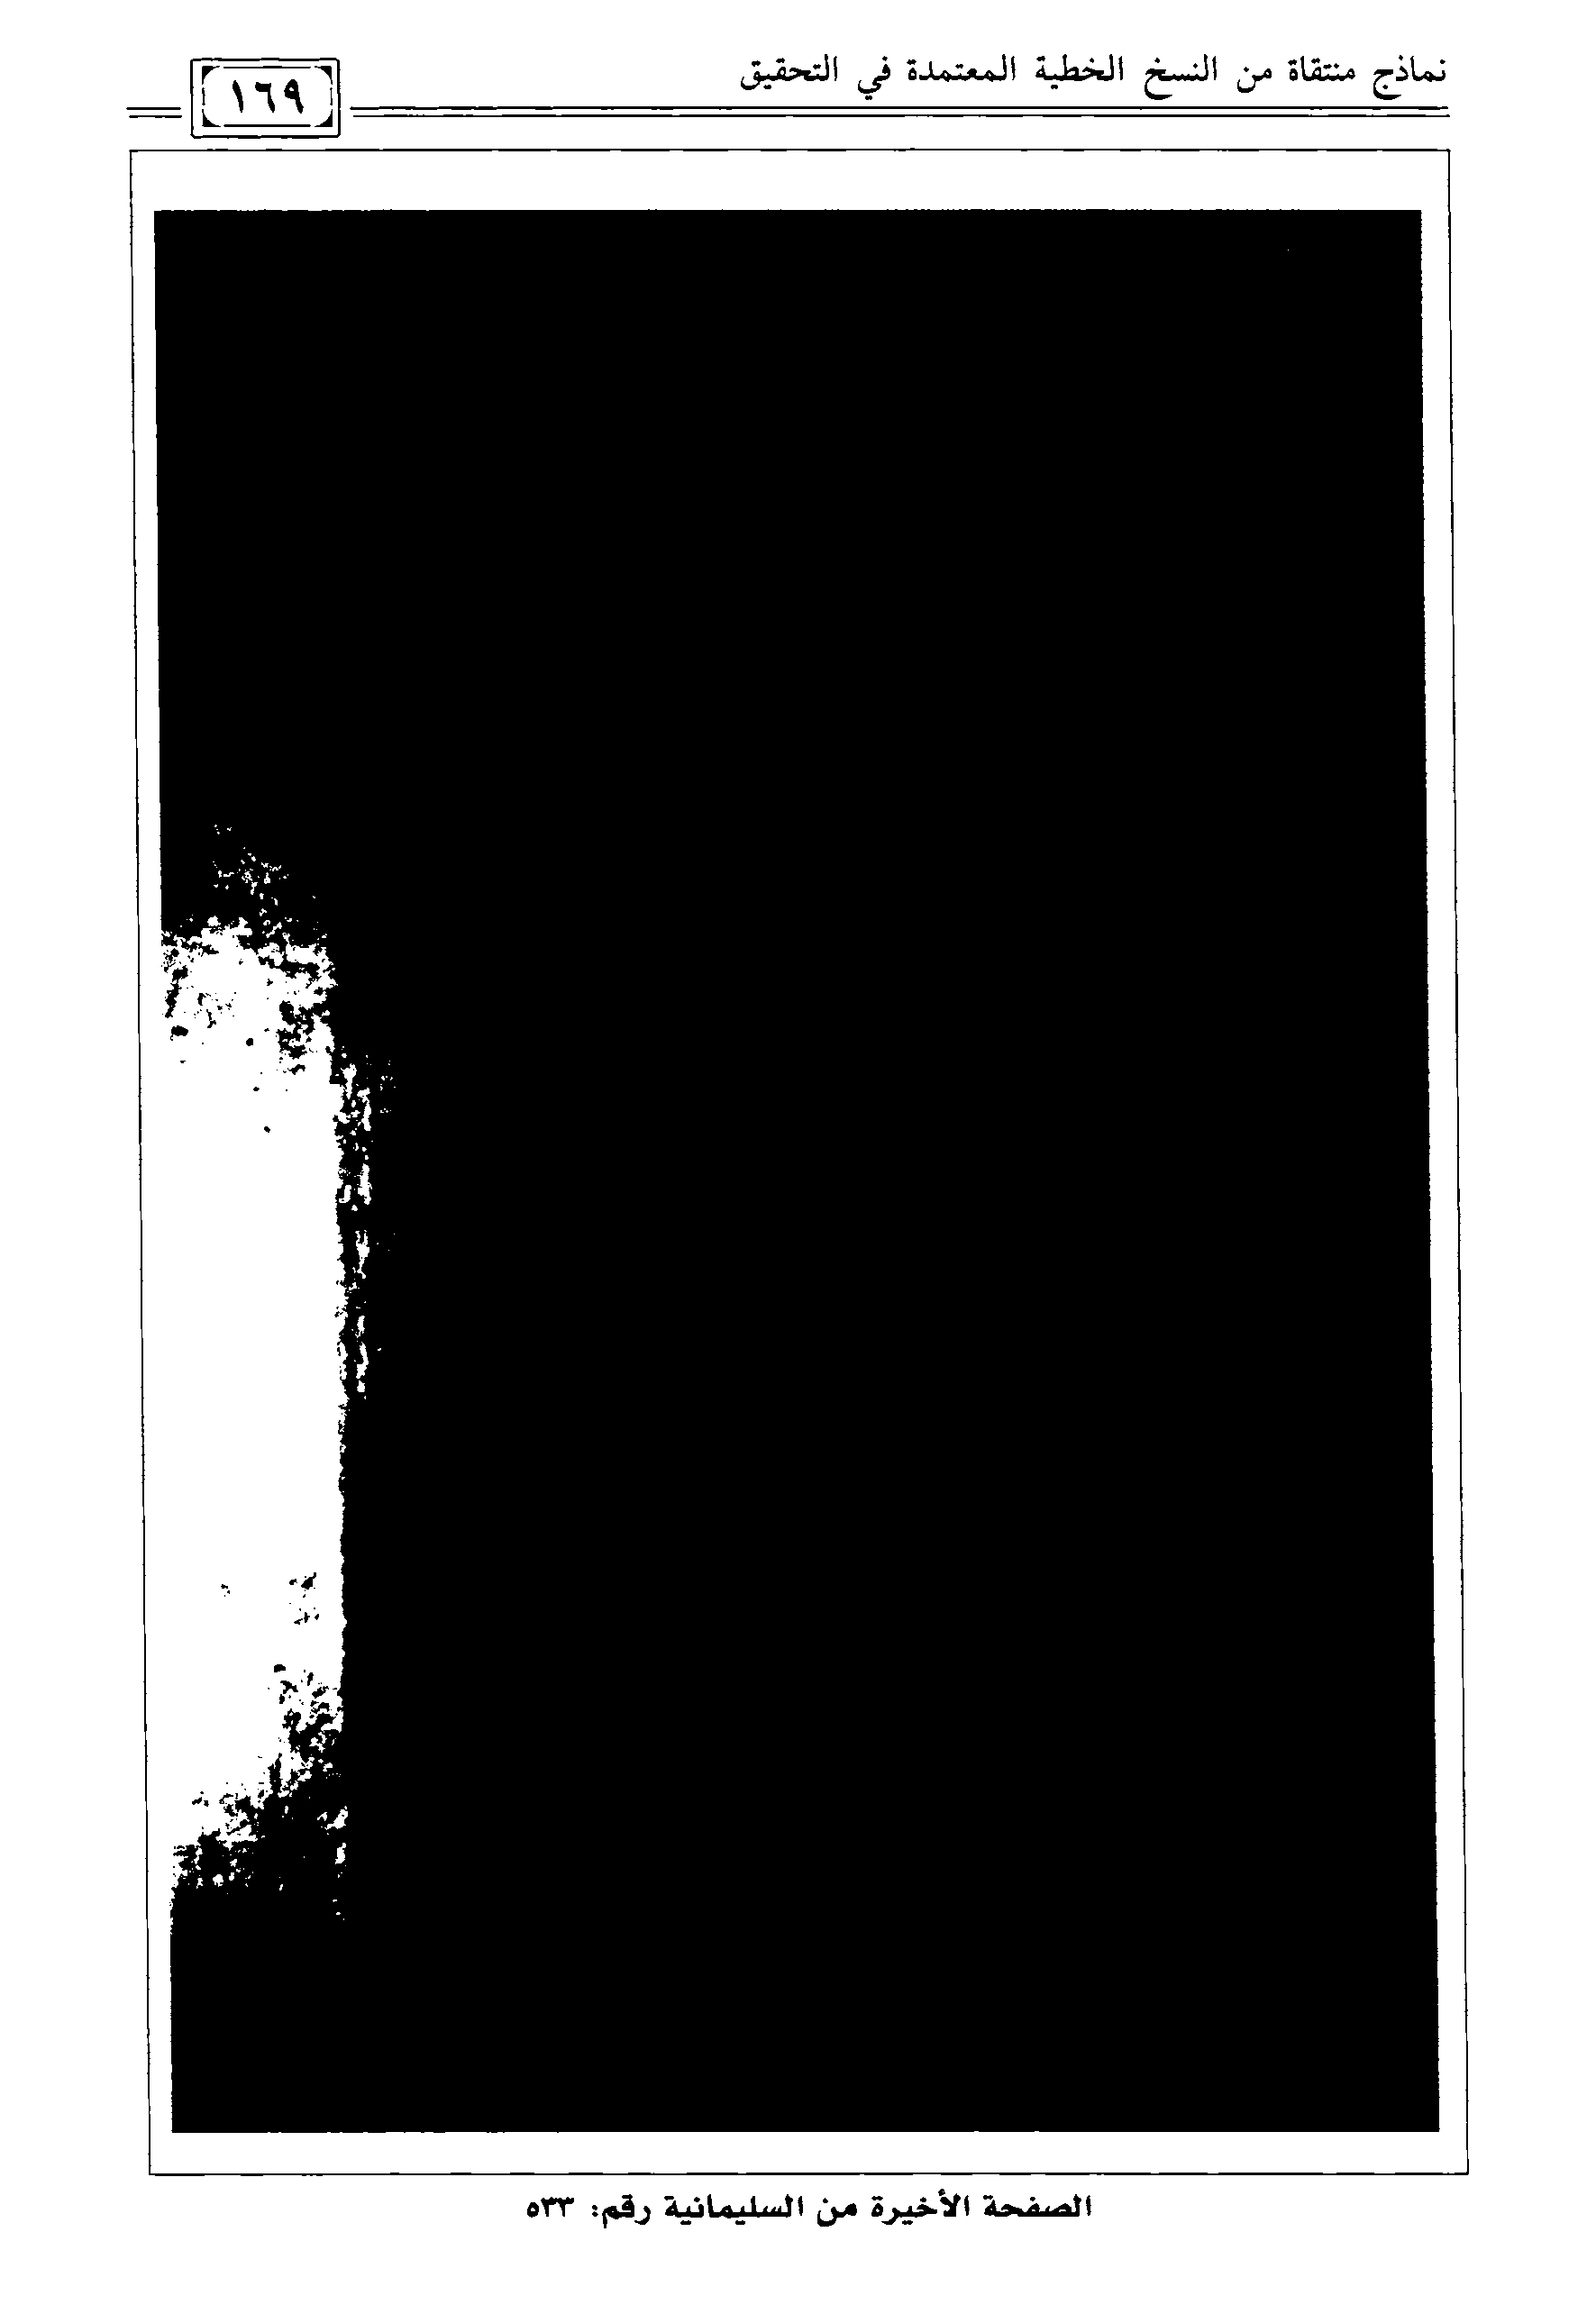 نماذج منتقاة من النسخ الخطية المعتمدة في التحقيق
١٦٩
الصفحة الأخيرة من السليمانية رقم: ٥٣٣